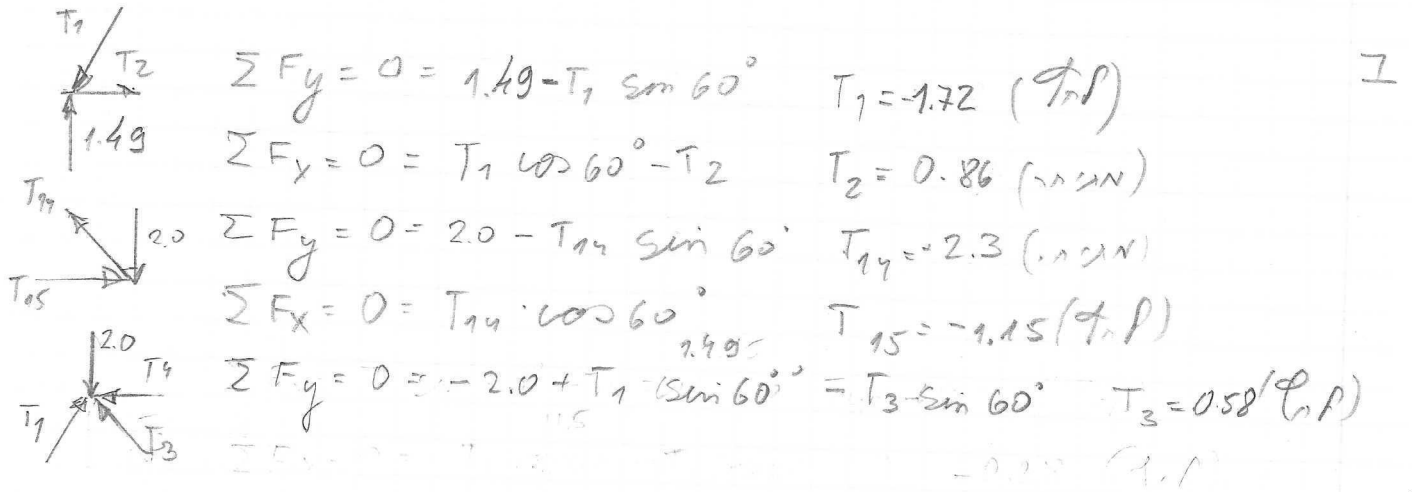 T₁
T₂
1.49
ΣFy = 0 = 1.49 - T₁ sin 60° T₁ = -1.72 (לחץ) I
ΣFx = 0 = T₁ cos 60° - T₂ T₂ = 0.86 (מתיחה)
T₁₄
2.0
T₁₅
ΣFy = 0 = 2.0 - T₁₄ sin 60° T₁₄ = -2.3 (מתיחה)
ΣFx = 0 = T₁₄ · cos 60° T₁₅ = -1.15 (לחץ)
1.49
2.0
T₄
T₁
T₃
ΣFy = 0 = -2.0 + T₁ (sin 60°) = T₃ sin 60° T₃ = 0.58 (לחץ)